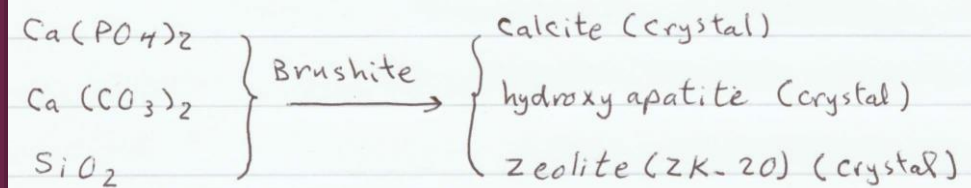 Ca(PO4)2
Ca(CO3)2
SiO2
Brushite
Calcite (Crystal)
hydroxy apatite (crystal)
Zeolite (ZK-20) (crystal)